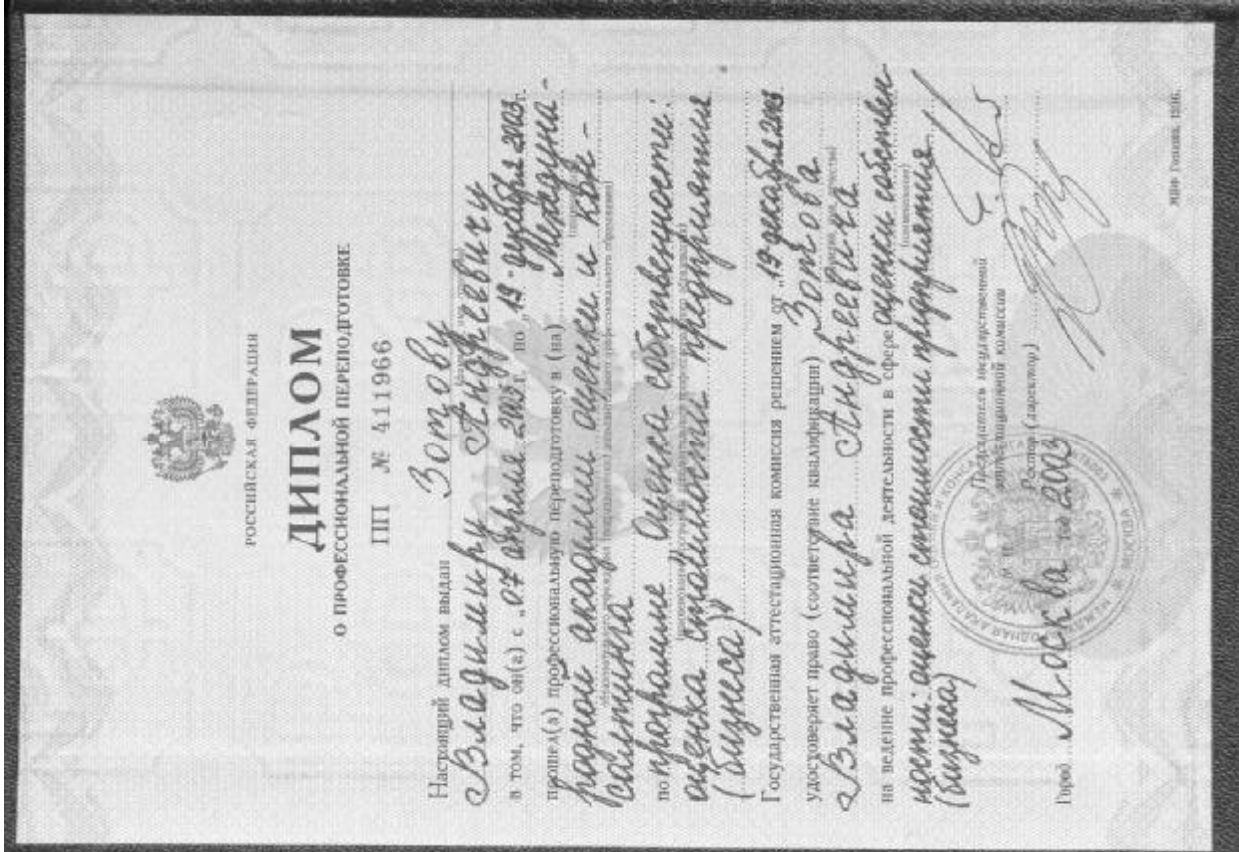 РОССИЙСКАЯ ФЕДЕРАЦИЯ
ДИПЛОМ
О ПРОФЕССИОНАЛЬНОЙ ПЕРЕПОДГОТОВКЕ
ПП № 411966
Настоящий диплом выдан Зотову
Владимиру Андреевичу
в том, что он(а) с „07 апреля 2003 г. по „19" декабря 2003 г.
прошел(а) профессиональную переподготовку в (на) Междуна-
родной академии оценки и кон-
салтинга
по программе Оценка собственности:
оценка стоимости предприятия
(бизнеса)
Государственная аттестационная комиссия решением от „19 декабря 2003
удостоверяет право (соответствие квалификации) Зотова
Владимира Андреевича
на ведение профессиональной деятельности в сфере оценки собствен-
ности: оценки стоимости предприятия
(бизнеса)
Председатель государственной
аттестационной комиссии
Ректор (директор)
Город Москва 2003
МПФ Гознака. 1996.